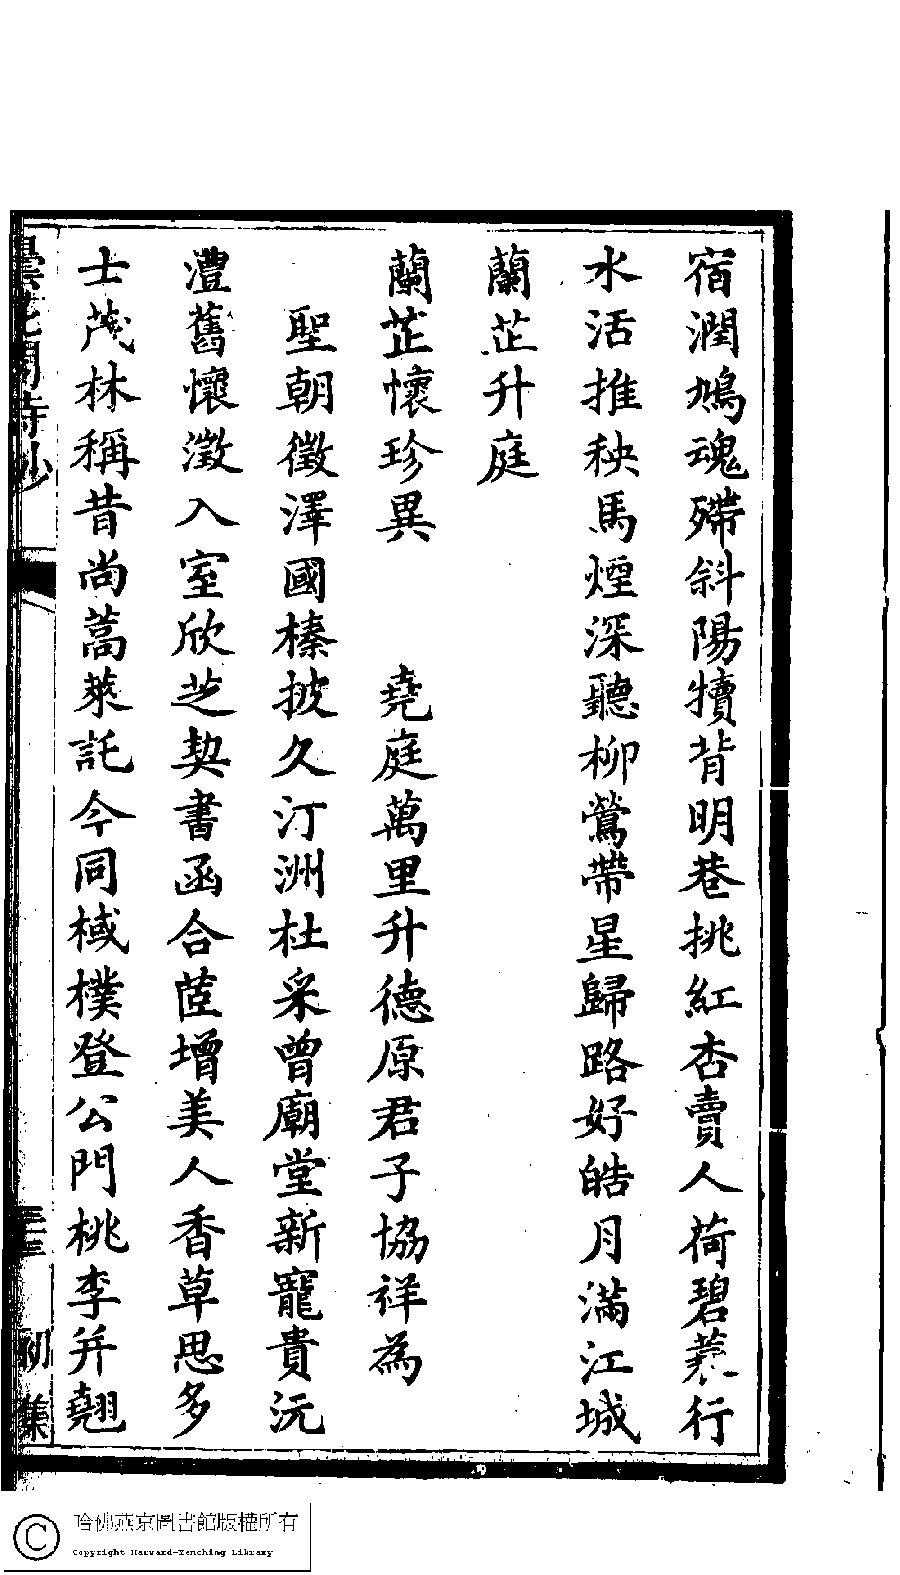 宿潤鳩魂殢斜陽犢背明巷挑紅杏賣人荷碧蓑行
水活推秧馬煙深聽柳鶯帶星歸路好皓月滿江城
蘭芷升庭
蘭芷懷珍異　堯庭萬里升德原君子協祥為
聖朝徵澤國榛披久汀洲杜采曾廟堂新寵貴沅
澧舊懷澂入室欣芝契書函合茝增美人香草思多
士茂林稱昔尚蒿萊託今同棫樸登公門桃李并翹
曇花閣詩鈔
三十三
初集
哈佛燕京圖書館版權所有
Copyright Harvard-Yenching Library